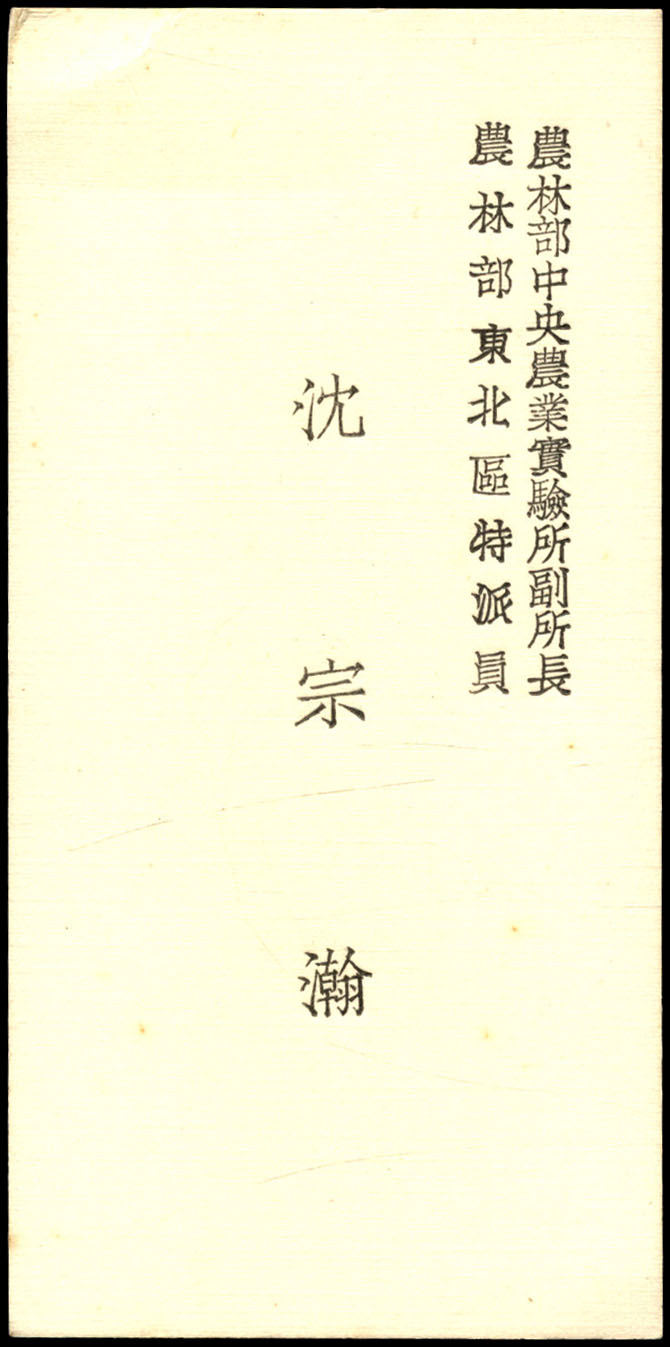 農林部中央農業實驗所副所長
農林部東北區特派員
沈宗瀚